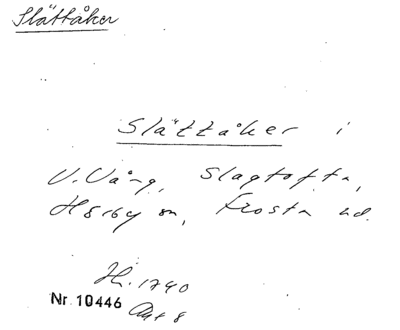 Slättåker
Slättåker i
V. Vång, Slagtofta,
Hörby sn, Frosta hd.
H. 1740
Nr 10446 Akt 8